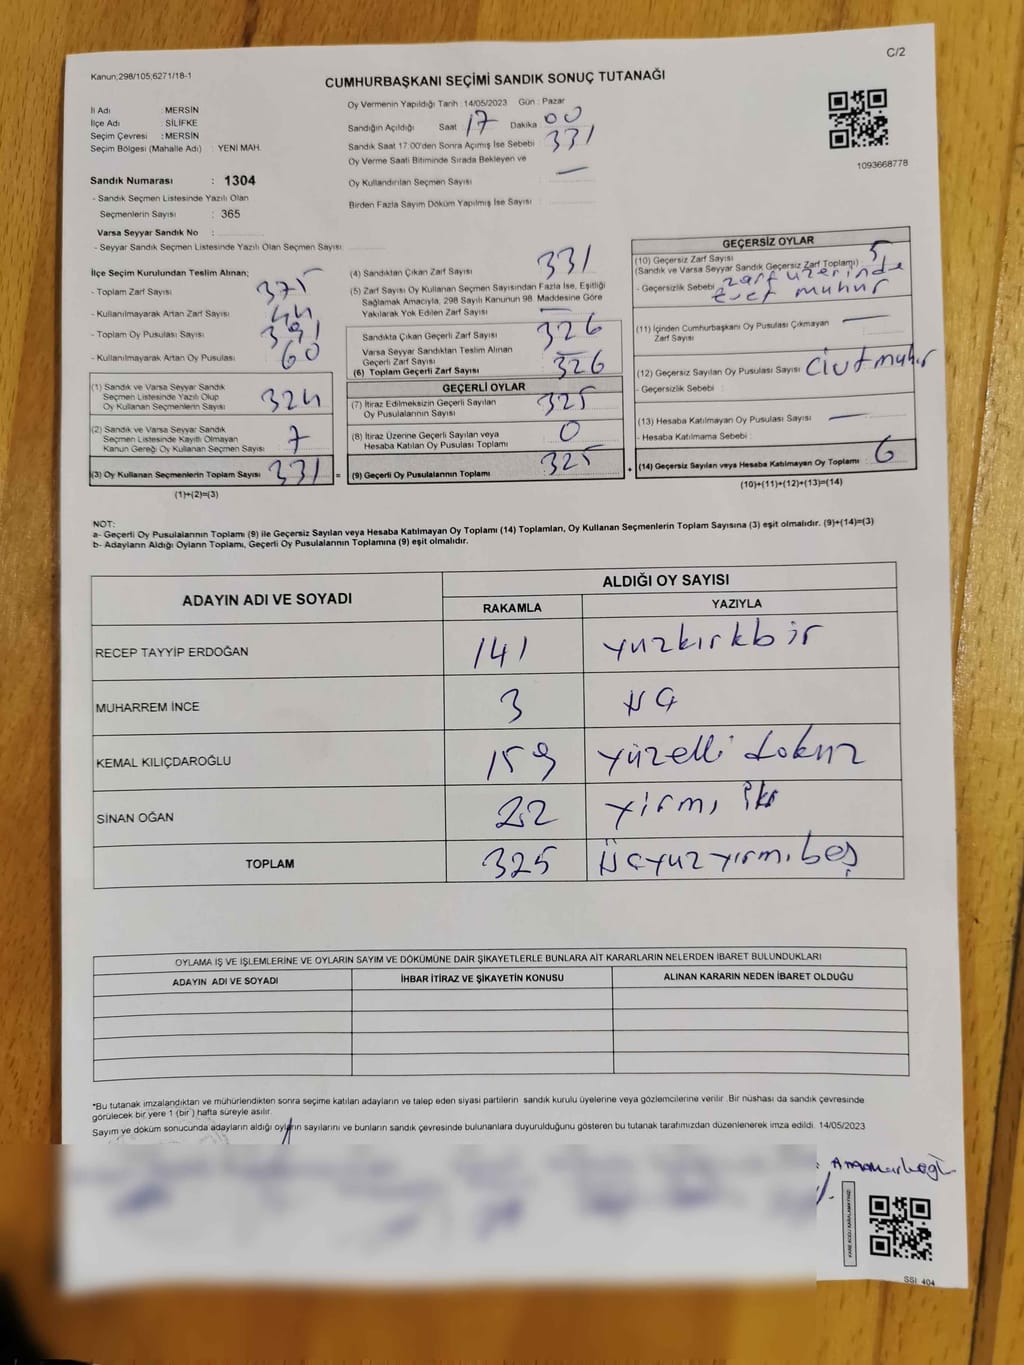 C/2
Kanun;298/105;6271/18-1
CUMHURBAŞKANI SEÇİMİ SANDIK SONUÇ TUTANAĞI
İl Adı : MERSİN
İlçe Adı : SİLİFKE
Seçim Çevresi : MERSİN
Seçim Bölgesi (Mahalle Adı) : YENİ MAH.
Sandık Numarası : 1304
- Sandık Seçmen Listesinde Yazılı Olan
Seçmenlerin Sayısı : 365
Varsa Seyyar Sandık No :
- Seyyar Sandık Seçmen Listesinde Yazılı Olan Seçmen Sayısı:
Oy Vermenin Yapıldığı Tarih : 14/05/2023 Gün : Pazar
Sandığın Açıldığı Saat 17 Dakika 00
Sandık Saat 17.00'den Sonra Açımış İse Sebebi 331
Oy Verme Saati Bitiminde Sırada Bekleyen ve
Oy Kullandırılan Seçmen Sayısı : —
Birden Fazla Sayım Döküm Yapılmış İse Sayısı :
1093668778
İlçe Seçim Kurulundan Teslim Alınan;
- Toplam Zarf Sayısı : 375
- Kullanılmayarak Artan Zarf Sayısı : 44
- Toplam Oy Pusulası Sayısı : 391
- Kullanılmayarak Artan Oy Pusulası : 60
(1) Sandık ve Varsa Seyyar Sandık
Seçmen Listesinde Yazılı Olup
Oy Kullanan Seçmenlerin Sayısı : 324
(2) Sandık ve Varsa Seyyar Sandık
Seçmen Listesinde Kayıtlı Olmayan
Kanun Gereği Oy Kullanan Seçmen Sayısı : 7
(3) Oy Kullanan Seçmenlerin Toplam Sayısı : 331 =
(1)+(2)=(3)
(4) Sandıktan Çıkan Zarf Sayısı : 331
(5) Zarf Sayısı Oy Kullanan Seçmen Sayısından Fazla İse, Eşitliği
Sağlamak Amacıyla, 298 Sayılı Kanunun 98. Maddesine Göre
Yakılarak Yok Edilen Zarf Sayısı : —
Sandıkta Çıkan Geçerli Zarf Sayısı : 326
Varsa Seyyar Sandıktan Teslim Alınan
Geçerli Zarf Sayısı : —
(6) Toplam Geçerli Zarf Sayısı : 326
GEÇERLİ OYLAR
(7) İtiraz Edilmeksizin Geçerli Sayılan
Oy Pusulalarının Sayısı : 325
(8) İtiraz Üzerine Geçerli Sayılan veya
Hesaba Katılan Oy Pusulası Toplamı : 0
(9) Geçerli Oy Pusulalarının Toplamı : 325 +
GEÇERSİZ OYLAR
(10) Geçersiz Zarf Sayısı
(Sandık ve Varsa Seyyar Sandık Geçersiz Zarf Toplamı) : 5
- Geçersizlik Sebebi : zarf üzerinde
evet muhur
(11) İçinden Cumhurbaşkanı Oy Pusulası Çıkmayan
Zarf Sayısı : —
(12) Geçersiz Sayılan Oy Pusulası Sayısı : Civt muhır
- Geçersizlik Sebebi :
(13) Hesaba Katılmayan Oy Pusulası Sayısı : —
- Hesaba Katılmama Sebebi :
(14) Geçersiz Sayılan veya Hesaba Katılmayan Oy Toplamı : 6
(10)+(11)+(12)+(13)=(14)
NOT:
a- Geçerli Oy Pusulalarının Toplamı (9) ile Geçersiz Sayılan veya Hesaba Katılmayan Oy Toplamı (14) Toplamları, Oy Kullanan Seçmenlerin Toplam Sayısına (3) eşit olmalıdır. (9)+(14)=(3)
b- Adayların Aldığı Oyların Toplamı, Geçerli Oy Pusulalarının Toplamına (9) eşit olmalıdır.
ADAYIN ADI VE SOYADI ALDIĞI OY SAYISI
RAKAMLA YAZIYLA
RECEP TAYYİP ERDOĞAN 141 yuzkırkbir
MUHARREM İNCE 3 üç
KEMAL KILIÇDAROĞLU 159 yüzelli dokuz
SİNAN OĞAN 22 yirmi iki
TOPLAM 325 üçyuzyırmıbeş
OYLAMA İŞ VE İŞLEMLERİNE VE OYLARIN SAYIM VE DÖKÜMÜNE DAİR ŞİKAYETLERLE BUNLARA AİT KARARLARIN NELERDEN İBARET BULUNDUKLARI
ADAYIN ADI VE SOYADI İHBAR İTİRAZ VE ŞİKAYETİN KONUSU ALINAN KARARIN NEDEN İBARET OLDUĞU
*Bu tutanak imzalandıktan ve mühürlendikten sonra seçime katılan adayların ve talep eden siyasi partilerin sandık kurulu üyelerine veya gözlemcilerine verilir .Bir nüshası da sandık çevresinde
görülecek bir yere 1 (bir ) hafta süreyle asılır.
Sayım ve döküm sonucunda adayların aldığı oyların sayılarını ve bunların sandık çevresinde bulunanlara duyurulduğunu gösteren bu tutanak tarafımızdan düzenlenerek imza edildi. 14/05/2023
SSI 404